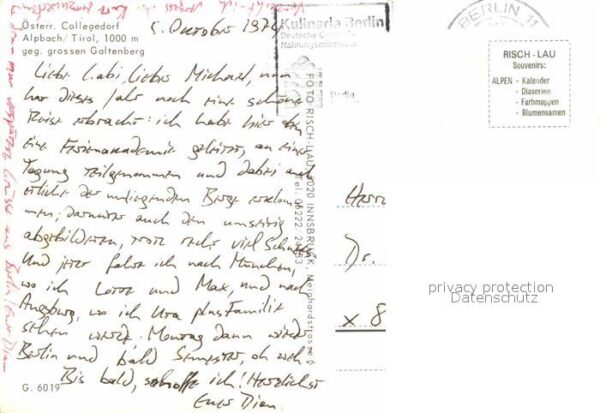 Österr. Collegedorf
Alpbach/Tirol, 1000 m
geg. grossen Galtenberg
5. Oktober 1974
Liebe Gabi, lieber Michael, nun
hat dieses Jahr noch eine schöne
Reise gebracht: ich habe hier
eine Ferienakademie geleitet, an einer
Tagung teilgenommen und dabei auch
etliche der umliegenden Berge
men; darunter auch den umseitig
abgebildeten, trotz sehr viel Schnee.
Und jetzt fahre ich nach München,
wo ich Lotte und Max, und nach
Augsburg, wo ich Uta plus Familie
sehen werde. Montag dann wieder
Berlin und bald Semester, oh weh
Bis bald, hoffe ich! Herzlichst
Euer
G. 6019
Kulinaria Berlin
Berlin
BERLIN 11
FOTO RISCH-LAU, 6020 INNSBRUCK
Tel. 05222
RISCH-LAU
Souvenirs:
ALPEN - Kalender
- Diaserien
- Farbmappen
- Blumensamen
Herrn
Dr.
x 8
privacy protection
Datenschutz
nur verspätete Grüsse aus Berlin! Euer